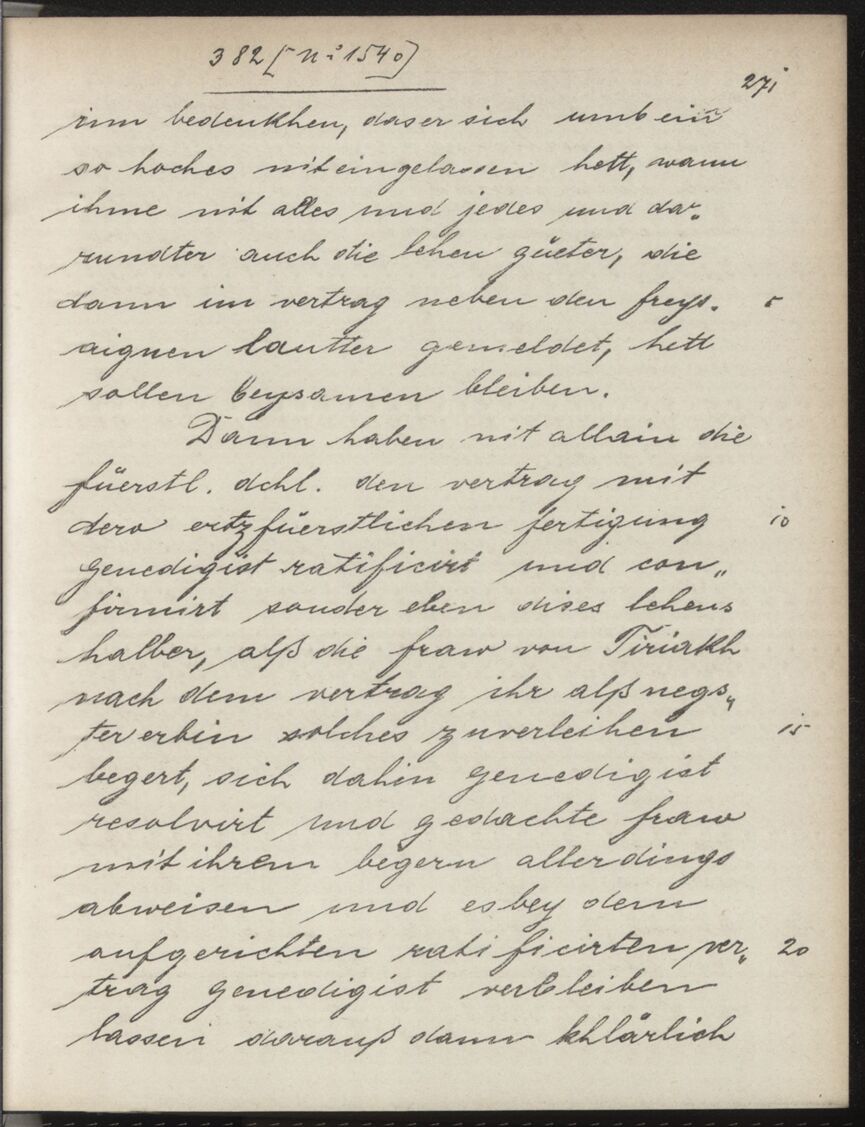 382 [Nº 1540]
271
imm bedenkhen, das er sich umb ein
so hoches nit eingelassen hett, wann
ihme nit alles und jedes und dar„
rundter auch die lehen güeter, die
dann im vertrag neben den freys. 5
aignen lautter gemeldet, hett
sollen beysamen bleiben.
Dann haben nit allain die
füerstl. dchl. den vertrag mit
dero ertzfüerstlichen fertigung 10
genedigist ratificirt und con„
firmirt sonder eben dises lehens
halber, alß die fraw von Tiriakh
nach dem vertrag ihr alß negs„
ter erbin solches zuverleihen 15
begert, sich dahin genedigist
resolvirt und gedachte fraw
mit ihrem begern allerdings
abweisen und es bey dem
aufgerichten ratificirten ver„ 20
trag genedigist verbleiben
lassen darauß dann khlärlich